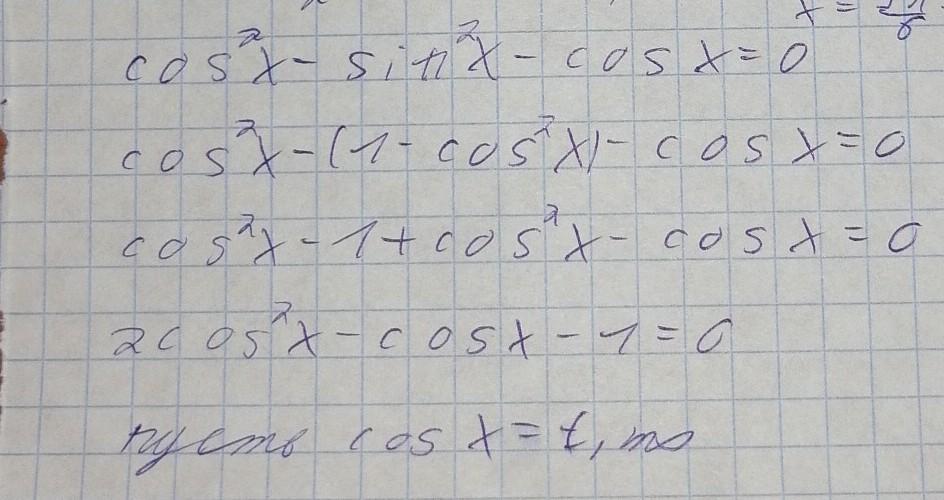 x = 
cos²x - sin²x - cos x = 0
cos²x - (1 - cos²x) - cos x = 0
cos²x - 1 + cos²x - cos x = 0
2cos²x - cos x - 1 = 0
пусть cos x = t, то